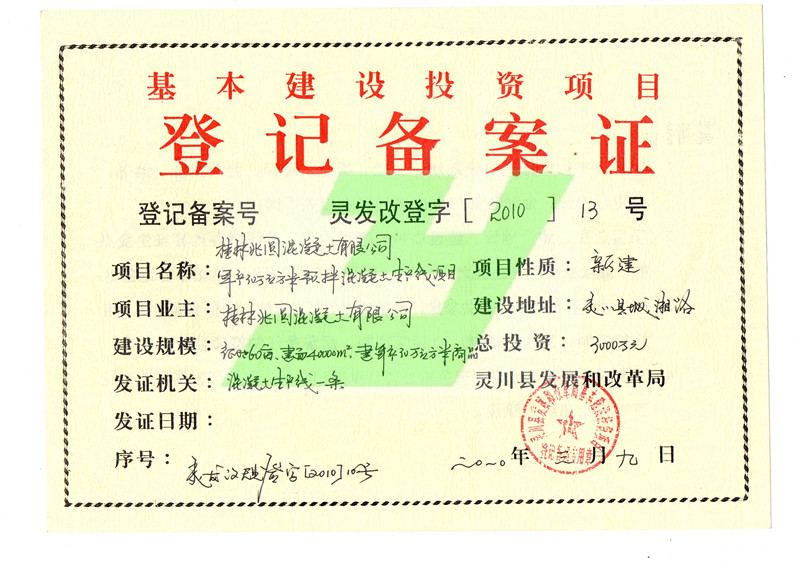 基本建设投资项目
登记备案证
登记备案号 灵发改登字[2010]13号
桂林兆圆混凝土有限公司
项目名称：年产30万立方米预拌混凝土生产线项目 项目性质：新建
项目业主：桂林兆圆混凝土有限公司 建设地址：灵川县城湘路
建设规模：征地60亩、建面4000m²、建年产30万立方米商品 总投资：3000万元
发证机关：混凝土生产线一条 灵川县发展和改革局
发证日期：
序号：灵发改登字[2010]10号 二〇一〇年三月九日